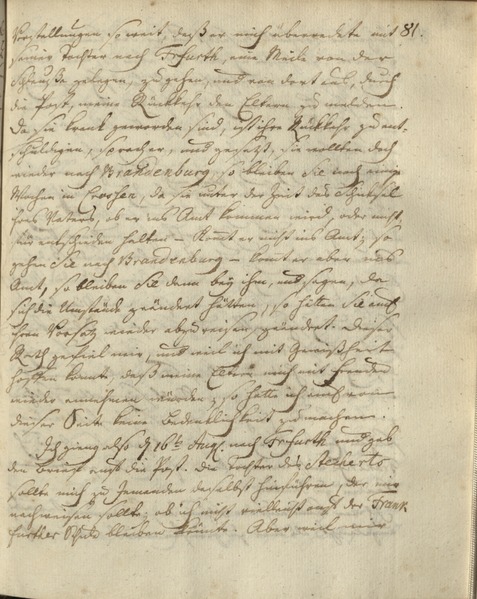 Vorstellungen so weit, daß er mich überredete mit 81.
seiner Tochter nach Frfurth, eine Meile von der
gelegen, zu gehen, und von dort aus, durch
die Post, meine Rückkehr den Eltern zu melden.
Da sie krank geworden sind, ist ihre Rückkehr zu ent-
schuldigen, sprach er, und gesetzt, sie wollten doch
wieder nach Brandenburg, so bleiben Sie noch einige
Wochen in Crossen, da sie unter der Zeit das Schicksal
Ihres Vaters, ob er ins Amt kommen wird, oder nicht,
entschieden halten – Komt er nicht ins Amt, so
gehen Sie nach Brandenburg – komt er aber ins
Amt, so bleiben Sie denn bey ihm, und sagen, da
sich die Umstände geändert hätten, so hätten Sie auch
Ihren Vorsatz wieder abzureisen, geändert. Dieser
Rath gefiel mir, und weil ich mit Gewißheit
hoffen konte, daß meine Eltern mich mit Freuden
wieder annehmen würden, so hatte ich auch von
dieser Seite keine Bedenklichkeit zu machen.
Ich gieng also d. 16t Aug. nach Frfurth und gab
den Brief auf die Post. Die Tochter des
sollte mich zu Jemanden daselbst hinführen, der mir
nachweisen sollte, ob ich nicht vielleicht auf der Frank
further Schule bleiben könnte. Aber weil mir